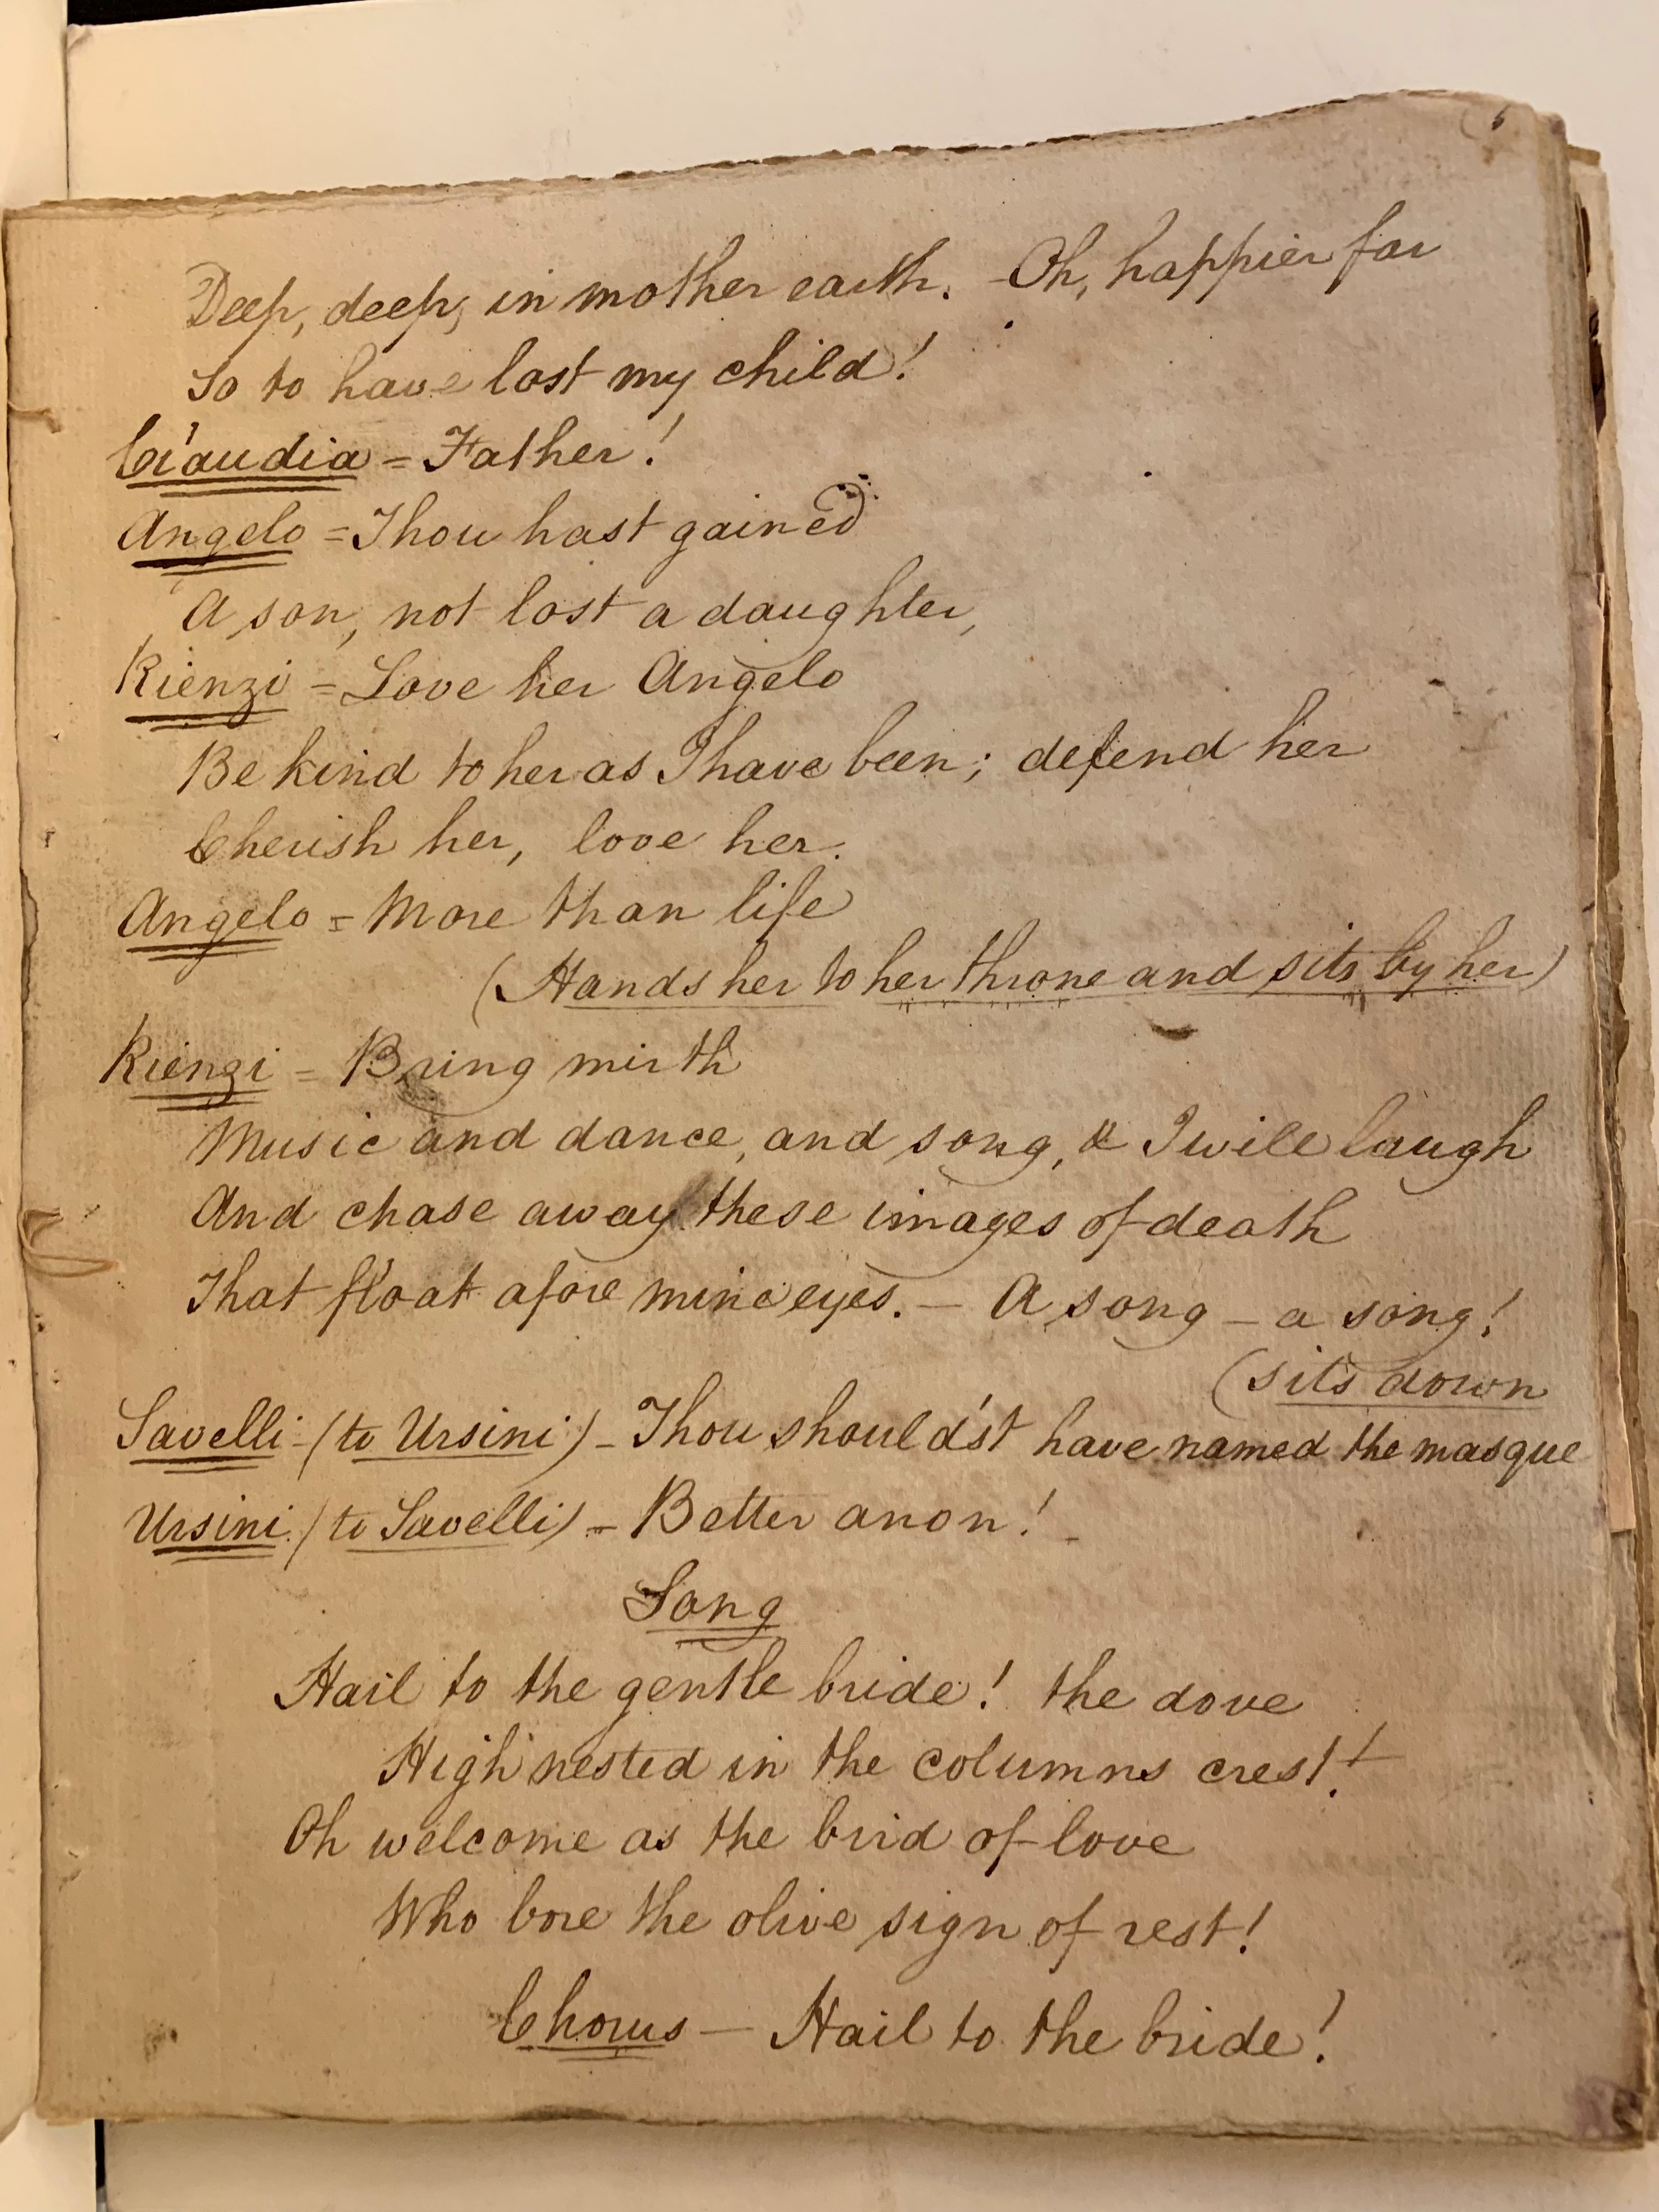 Deep, deep, in mother earth. - Oh, happier far
So to have lost my child!
Claudia = Father!
Angelo = Thou hast gained
A son, not lost a daughter,
Rienzi = Love her Angelo
Be kind to her as I have been; defend her
Cherish her, love her.
Angelo = More than life
(Hands her to her throne and sits by her)
Rienzi = Bring mirth
Music and dance, and song, & I will laugh
And chase away these images of death
That float afore mine eyes. — A song — a song!
(sits down
Savelli - (to Ursini) - Thou should'st have named the masque
Ursini (to Savelli) - Better anon! -
Song
Hail to the gentle bride! the dove
High nested in the columns crest!
Oh welcome as the bird of love
Who bore the olive sign of rest!
Chorus — Hail to the bride!